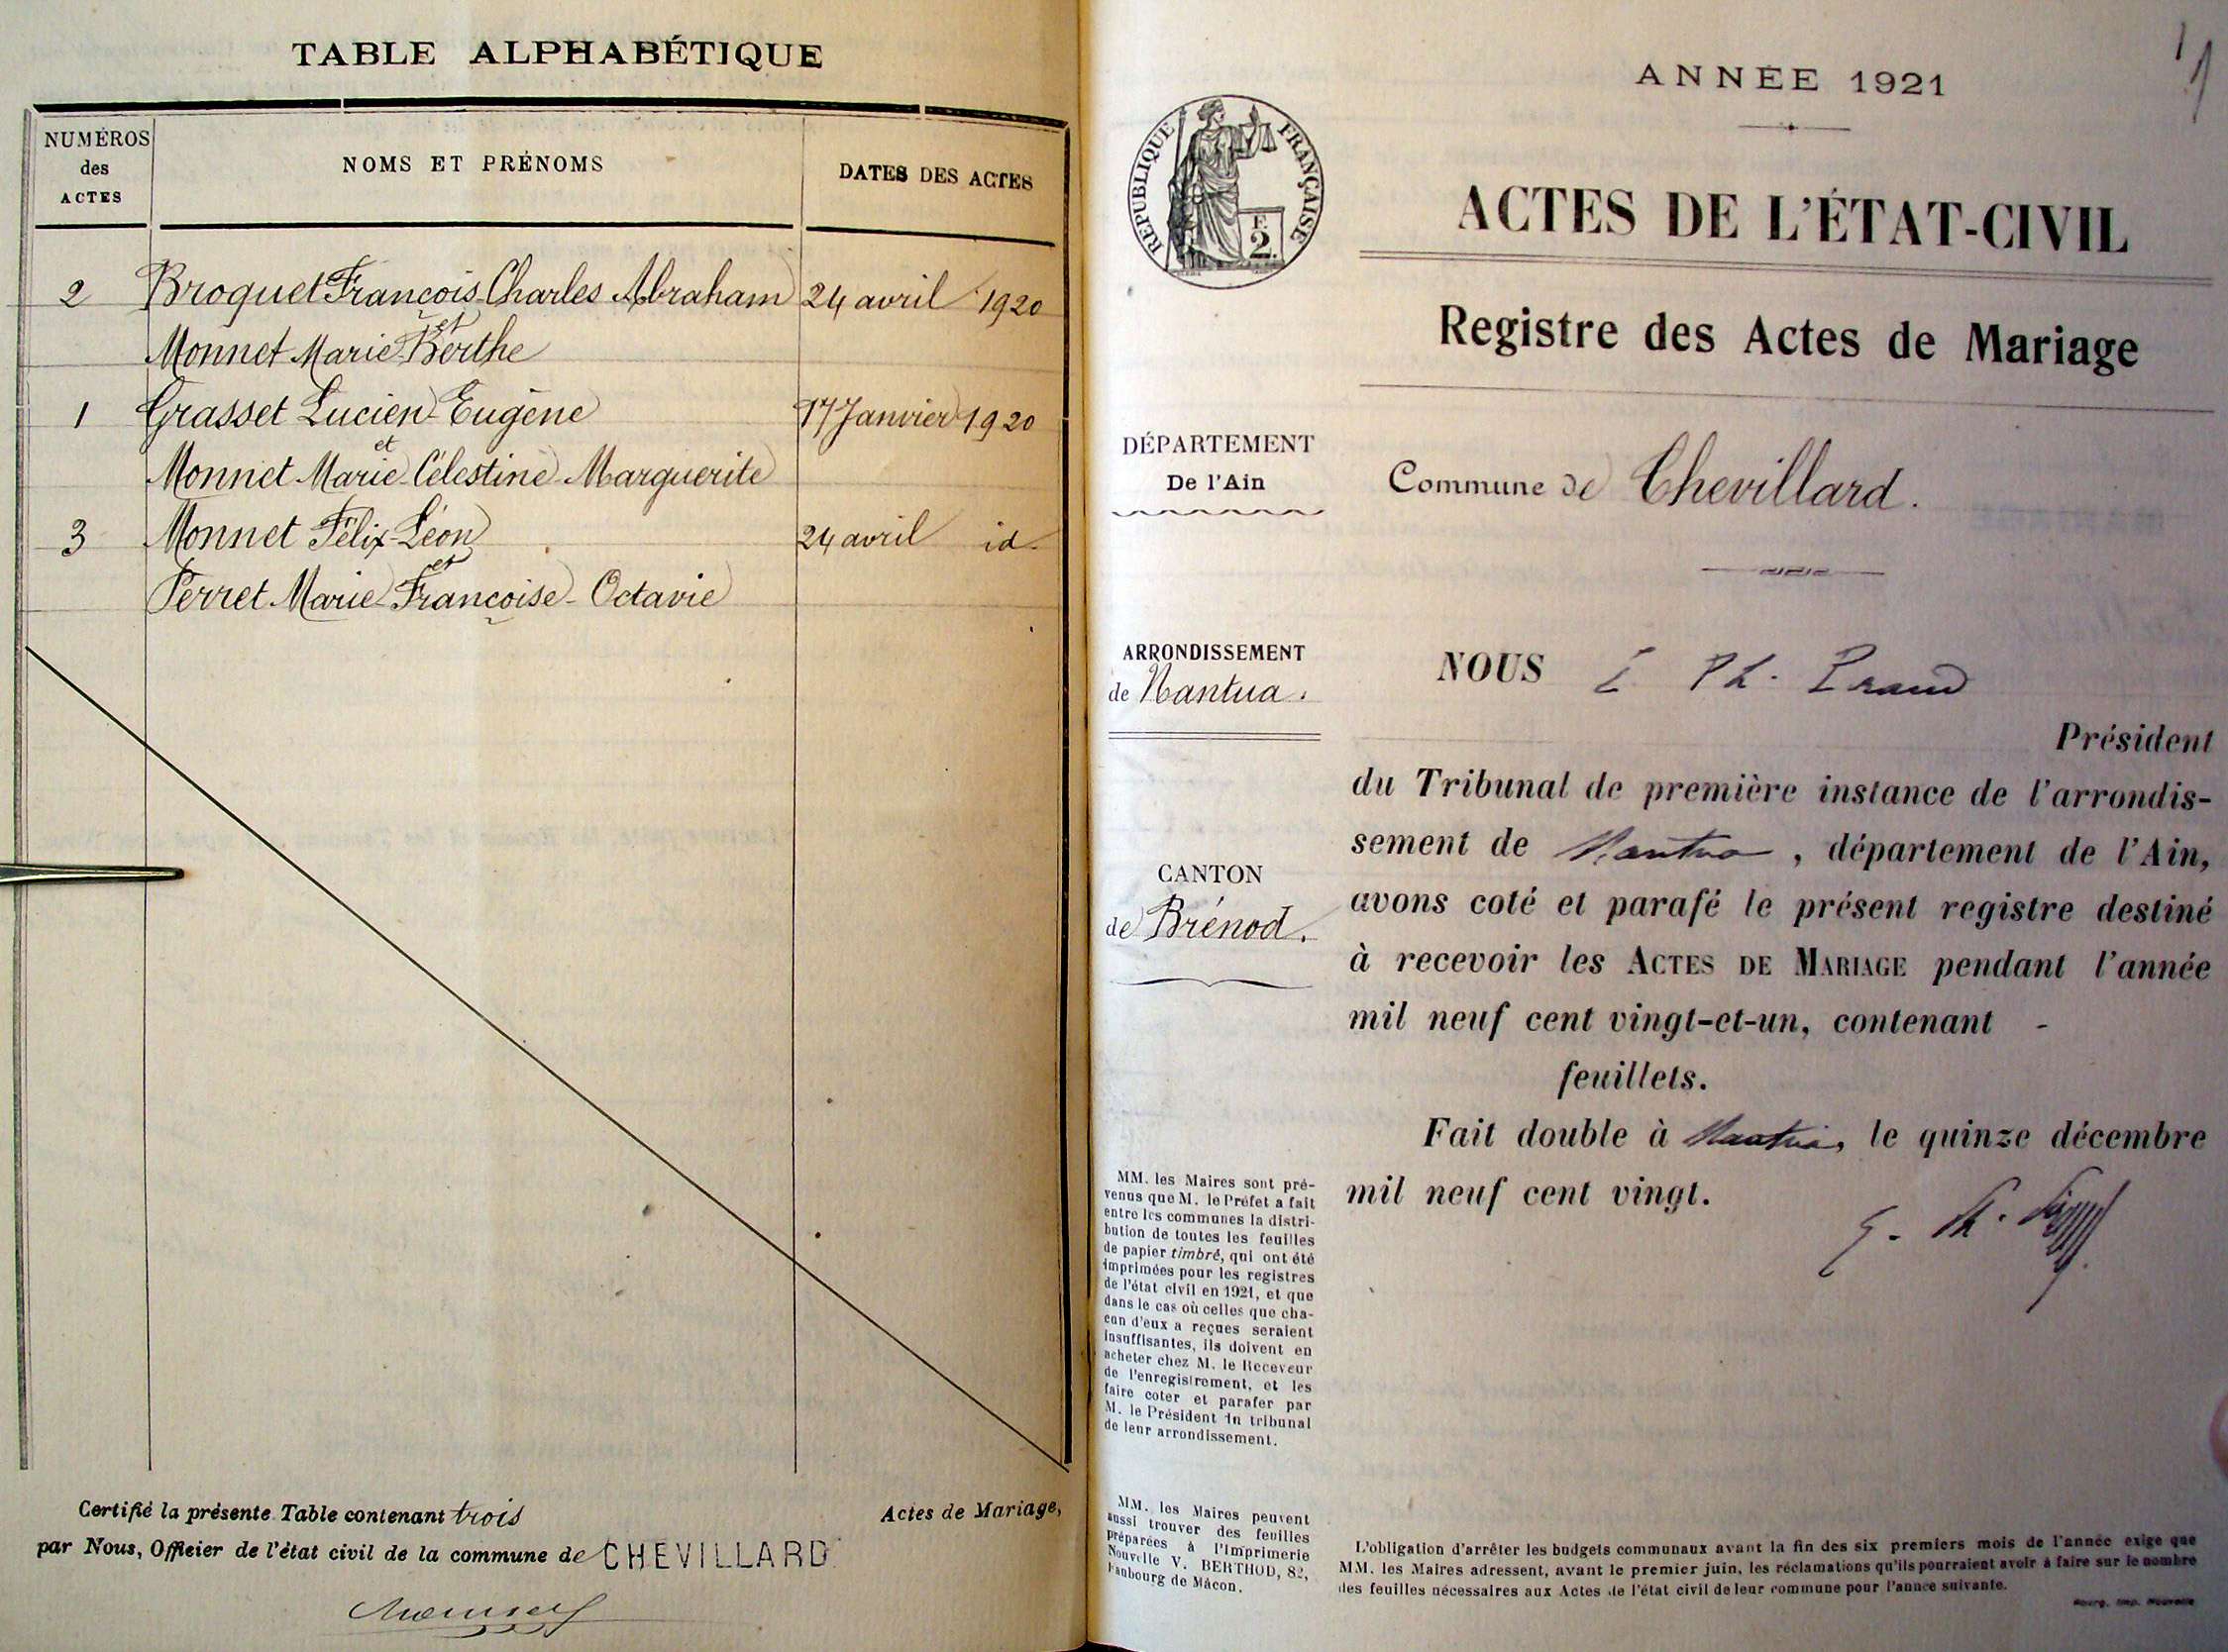 TABLE ALPHABÉTIQUE
NUMÉROS
des
ACTES
NOMS ET PRÉNOMS
DATES DES ACTES
2 Broquet François Charles Abraham 24 avril 1920
et
Monnet Marie Berthe
1 Grasset Lucien Eugène 17 Janvier 1920
et
Monnet Marie Célestine Marguerite
3 Monnet Félix Léon 24 avril id.
et
Perret Marie Françoise Octavie
Certifié la présente Table contenant trois Actes de Mariage,
par Nous, Officier de l'état civil de la commune de CHEVILLARD
ANNÉE 1921
RÉPUBLIQUE FRANÇAISE
F.
2.
ACTES DE L'ÉTAT-CIVIL
Registre des Actes de Mariage
DÉPARTEMENT
De l'Ain
Commune de Chevillard.
ARRONDISSEMENT
de Nantua.
CANTON
de Brénod.
NOUS
Président
du Tribunal de première instance de l'arrondis-
sement de Nantua, département de l'Ain,
avons coté et parafé le présent registre destiné
à recevoir les ACTES DE MARIAGE pendant l'année
mil neuf cent vingt-et-un, contenant -
feuillets.
Fait double à Nantua, le quinze décembre
mil neuf cent vingt.
MM. les Maires sont pré-
venus que M. le Préfet a fait
entre les communes la distri-
bution de toutes les feuilles
de papier timbré, qui ont été
imprimées pour les registres
de l'état civil en 1921, et que
dans le cas où celles que cha-
cun d'eux a reçues seraient
insuffisantes, ils doivent en
acheter chez M. le Receveur
de l'enregistrement, et les
faire coter et parafer par
M. le Président du tribunal
de leur arrondissement.
MM. les Maires peuvent
aussi trouver des feuilles
préparées à l'Imprimerie
Nouvelle V. BERTHOD, 82,
Faubourg de Mâcon.
L'obligation d'arrêter les budgets communaux avant la fin des six premiers mois de l'année exige que
MM. les Maires adressent, avant le premier juin, les réclamations qu'ils pourraient avoir à faire sur le nombre
des feuilles nécessaires aux Actes de l'état civil de leur commune pour l'année suivante.
Bourg, Imp. Nouvelle